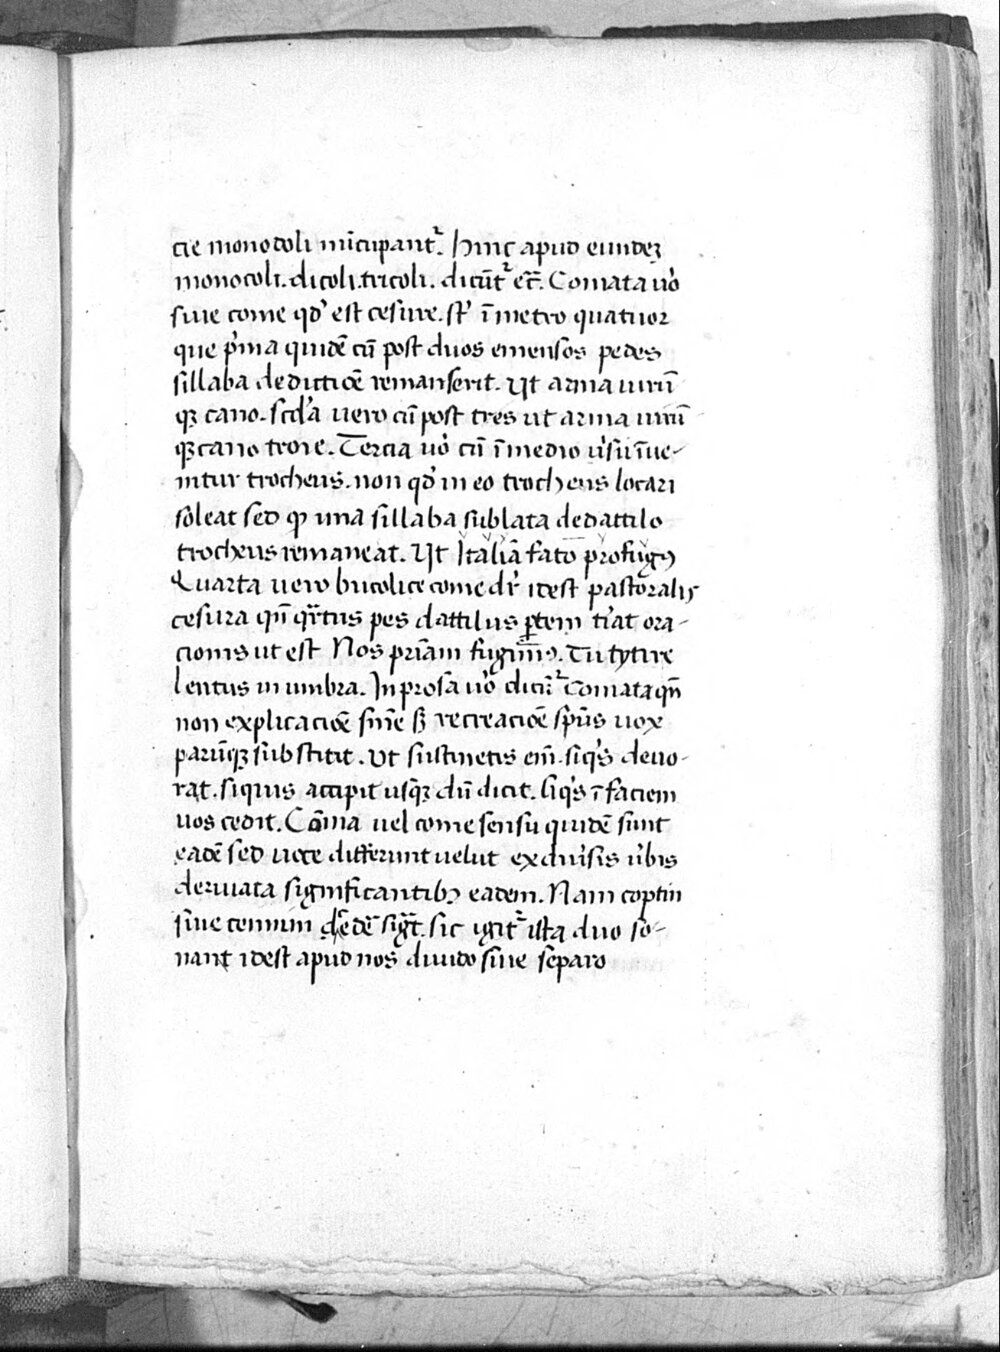 cie monocoli nūcupant᷑. hinc apud eundeꝫ
monocoli. dicoli. tricoli. dicūt᷑ etc̄. Comata uo᷑
siue come qd᷑ est cesure. st᷑ ī metro quatuor
que p᷑ma quidē cū post duos emensos pedes
sillaba deductiōe remanserit. Ut arma uirū
qꝫ cano. scd᷑a uero cū post tres ut arma uirū
qꝫ cano troie. Tercia uo᷑ cū ī medio u᷑su īue-
nitur trocheus. non qd᷑ in eo trocheus locari
soleat sed qꝫ una sillaba sublata de dattilo
trocheus remaneat. Ut Italiā fato profugꝰ
Quarta uero bucolice come dr᷑ idest pastoralis
cesura qn̄ qr᷑tus pes dattilus ꝑtem t᷑iat ora-
cionis ut est Nos priam fugimꝰ. Tu tytire
lentus in umbra. In prosa uo᷑ dicit᷑ Comata qn̄
non explicaciōe sn̄ie sꝫ recreaciōe spūs uox
parūqꝫ substitit. Ut sustinetis em̄. siq᷑s deuo-
rat. siquis accipit usqꝫ dū dicit. siq᷑s ī faciem
uos cedit. Cōma uel come sensu quidē sunt
eadē sed uoce differunt uelut ex diu᷑sis u᷑bis
deriuata significantibꝫ eadem. Nam coptin
siue temnin gr̄e idē sigt̄. sic igit᷑ ista duo so-
nant idest apud nos diuido siue separo